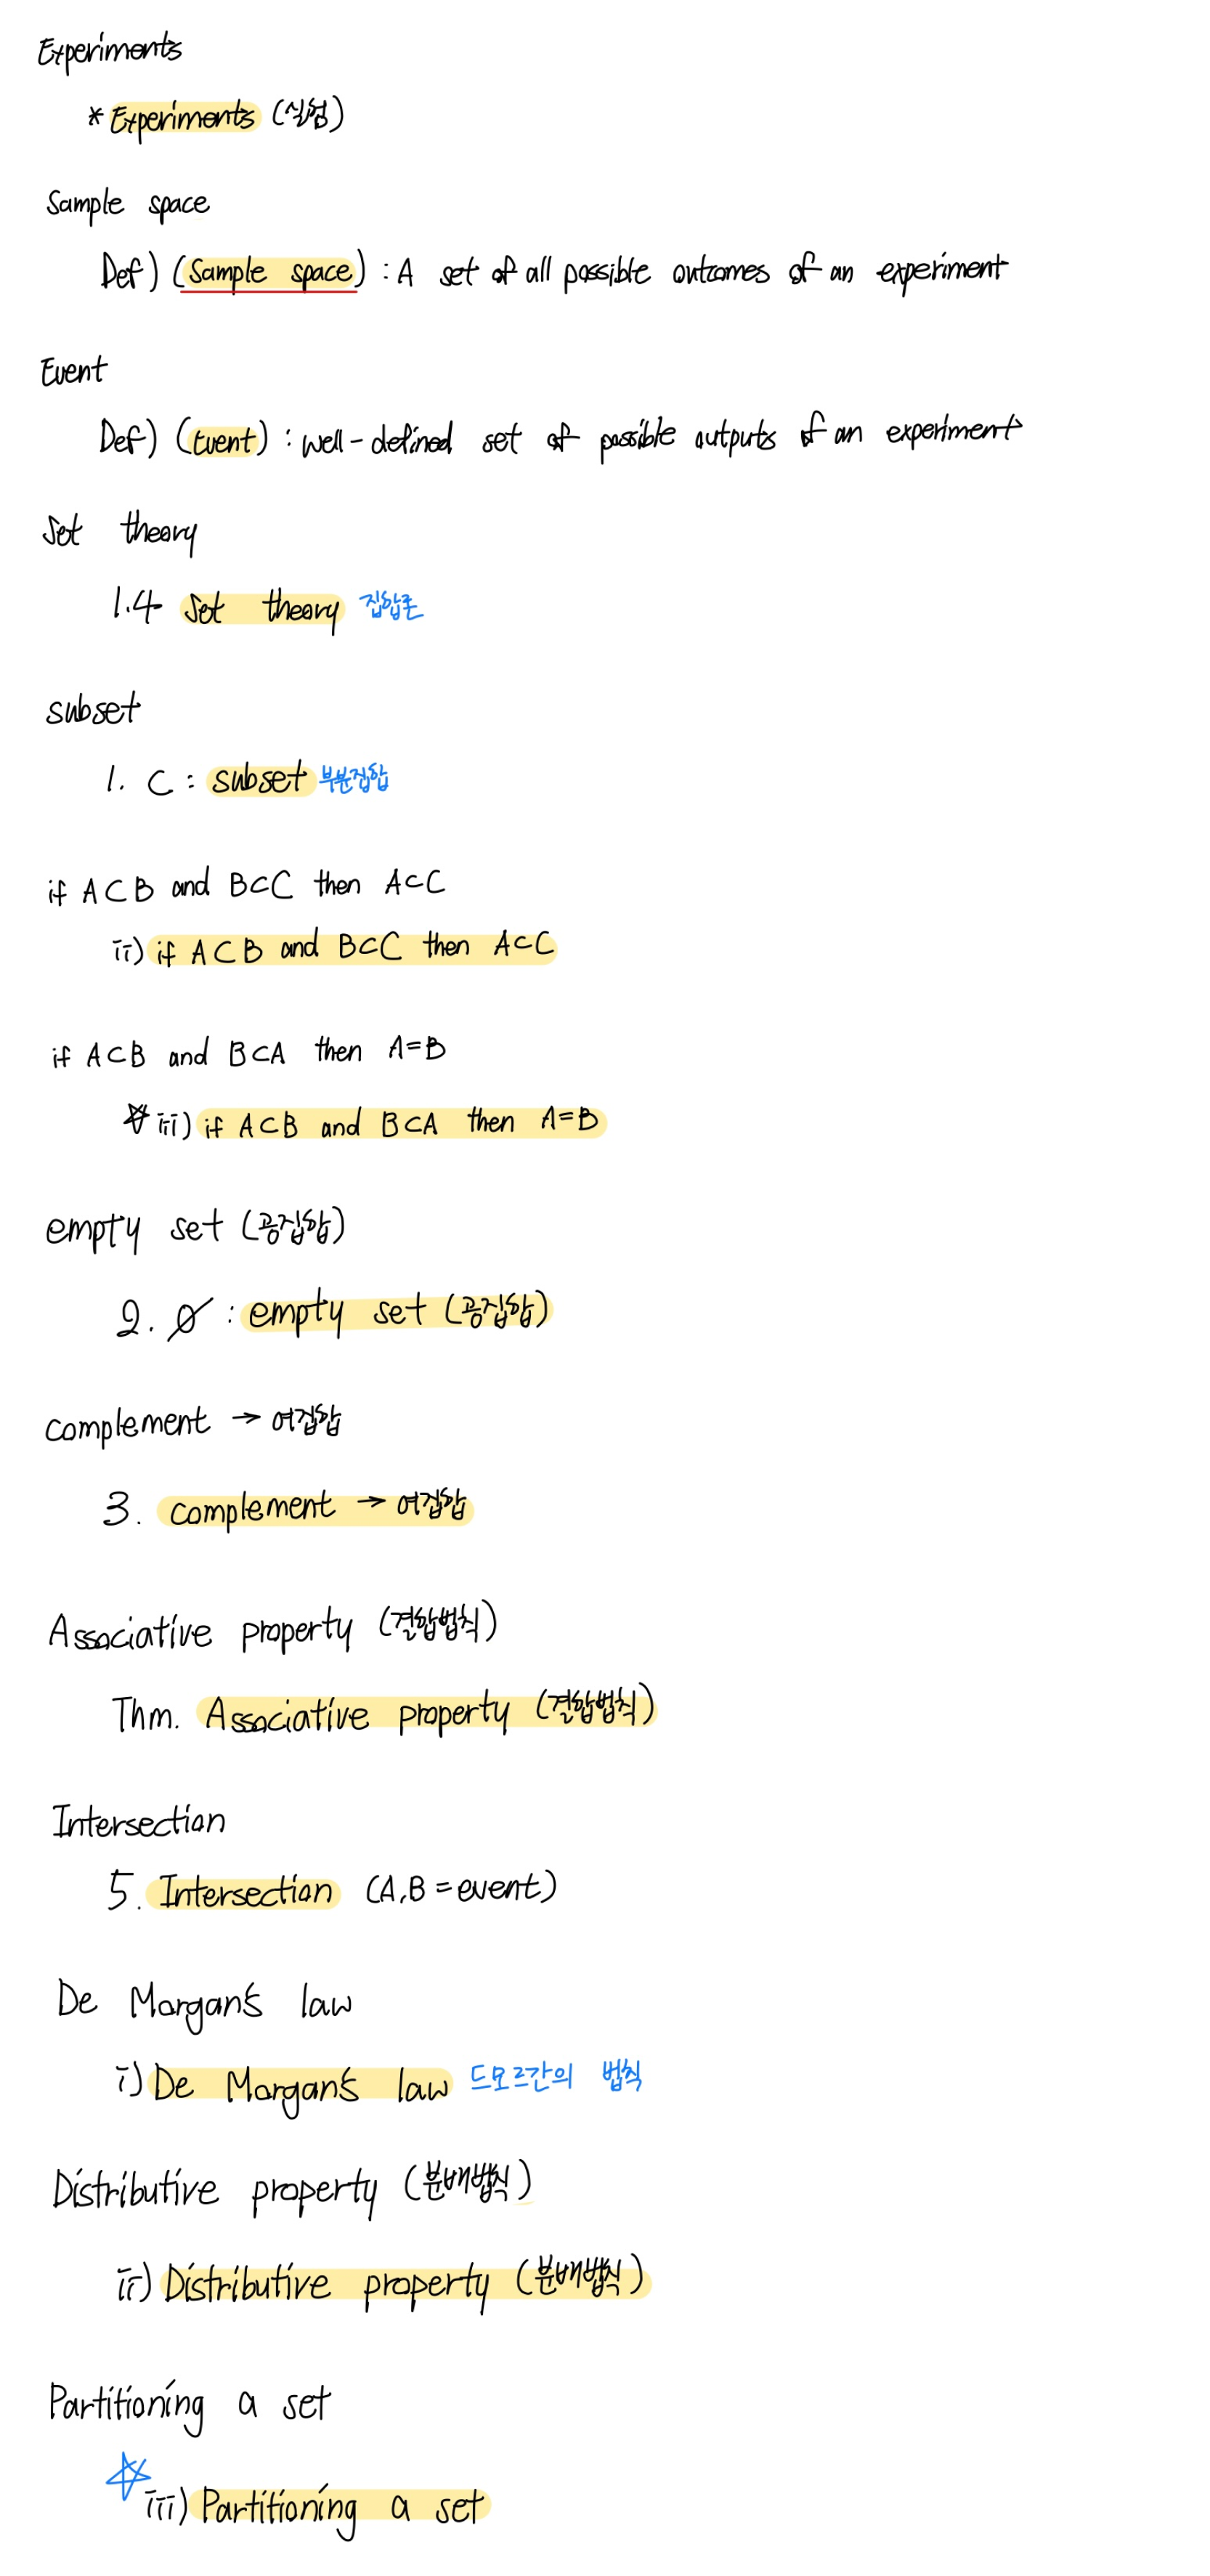 Experiments
* Experiments (실험)
Sample space
Def) (Sample space) : A set of all possible outcomes of an experiment
Event
Def) (Event) : well-defined set of possible outputs of an experiment
Set theory
1.4 Set theory 집합론
subset
1. ⊂ : subset 부분집합
if A⊂B and B⊂C then A⊂C
ii) if A⊂B and B⊂C then A⊂C
if A⊂B and B⊂A then A=B
☆ iii) if A⊂B and B⊂A then A=B
empty set (공집합)
2. ∅ : empty set (공집합)
complement → 여집합
3. complement → 여집합
Associative property (결합법칙)
Thm. Associative property (결합법칙)
Intersection
5. Intersection (A,B = event)
De Morgan's law
i) De Morgan's law 드모르간의 법칙
Distributive property (분배법칙)
ii) Distributive property (분배법칙)
Partitioning a set
☆ iii) Partitioning a set